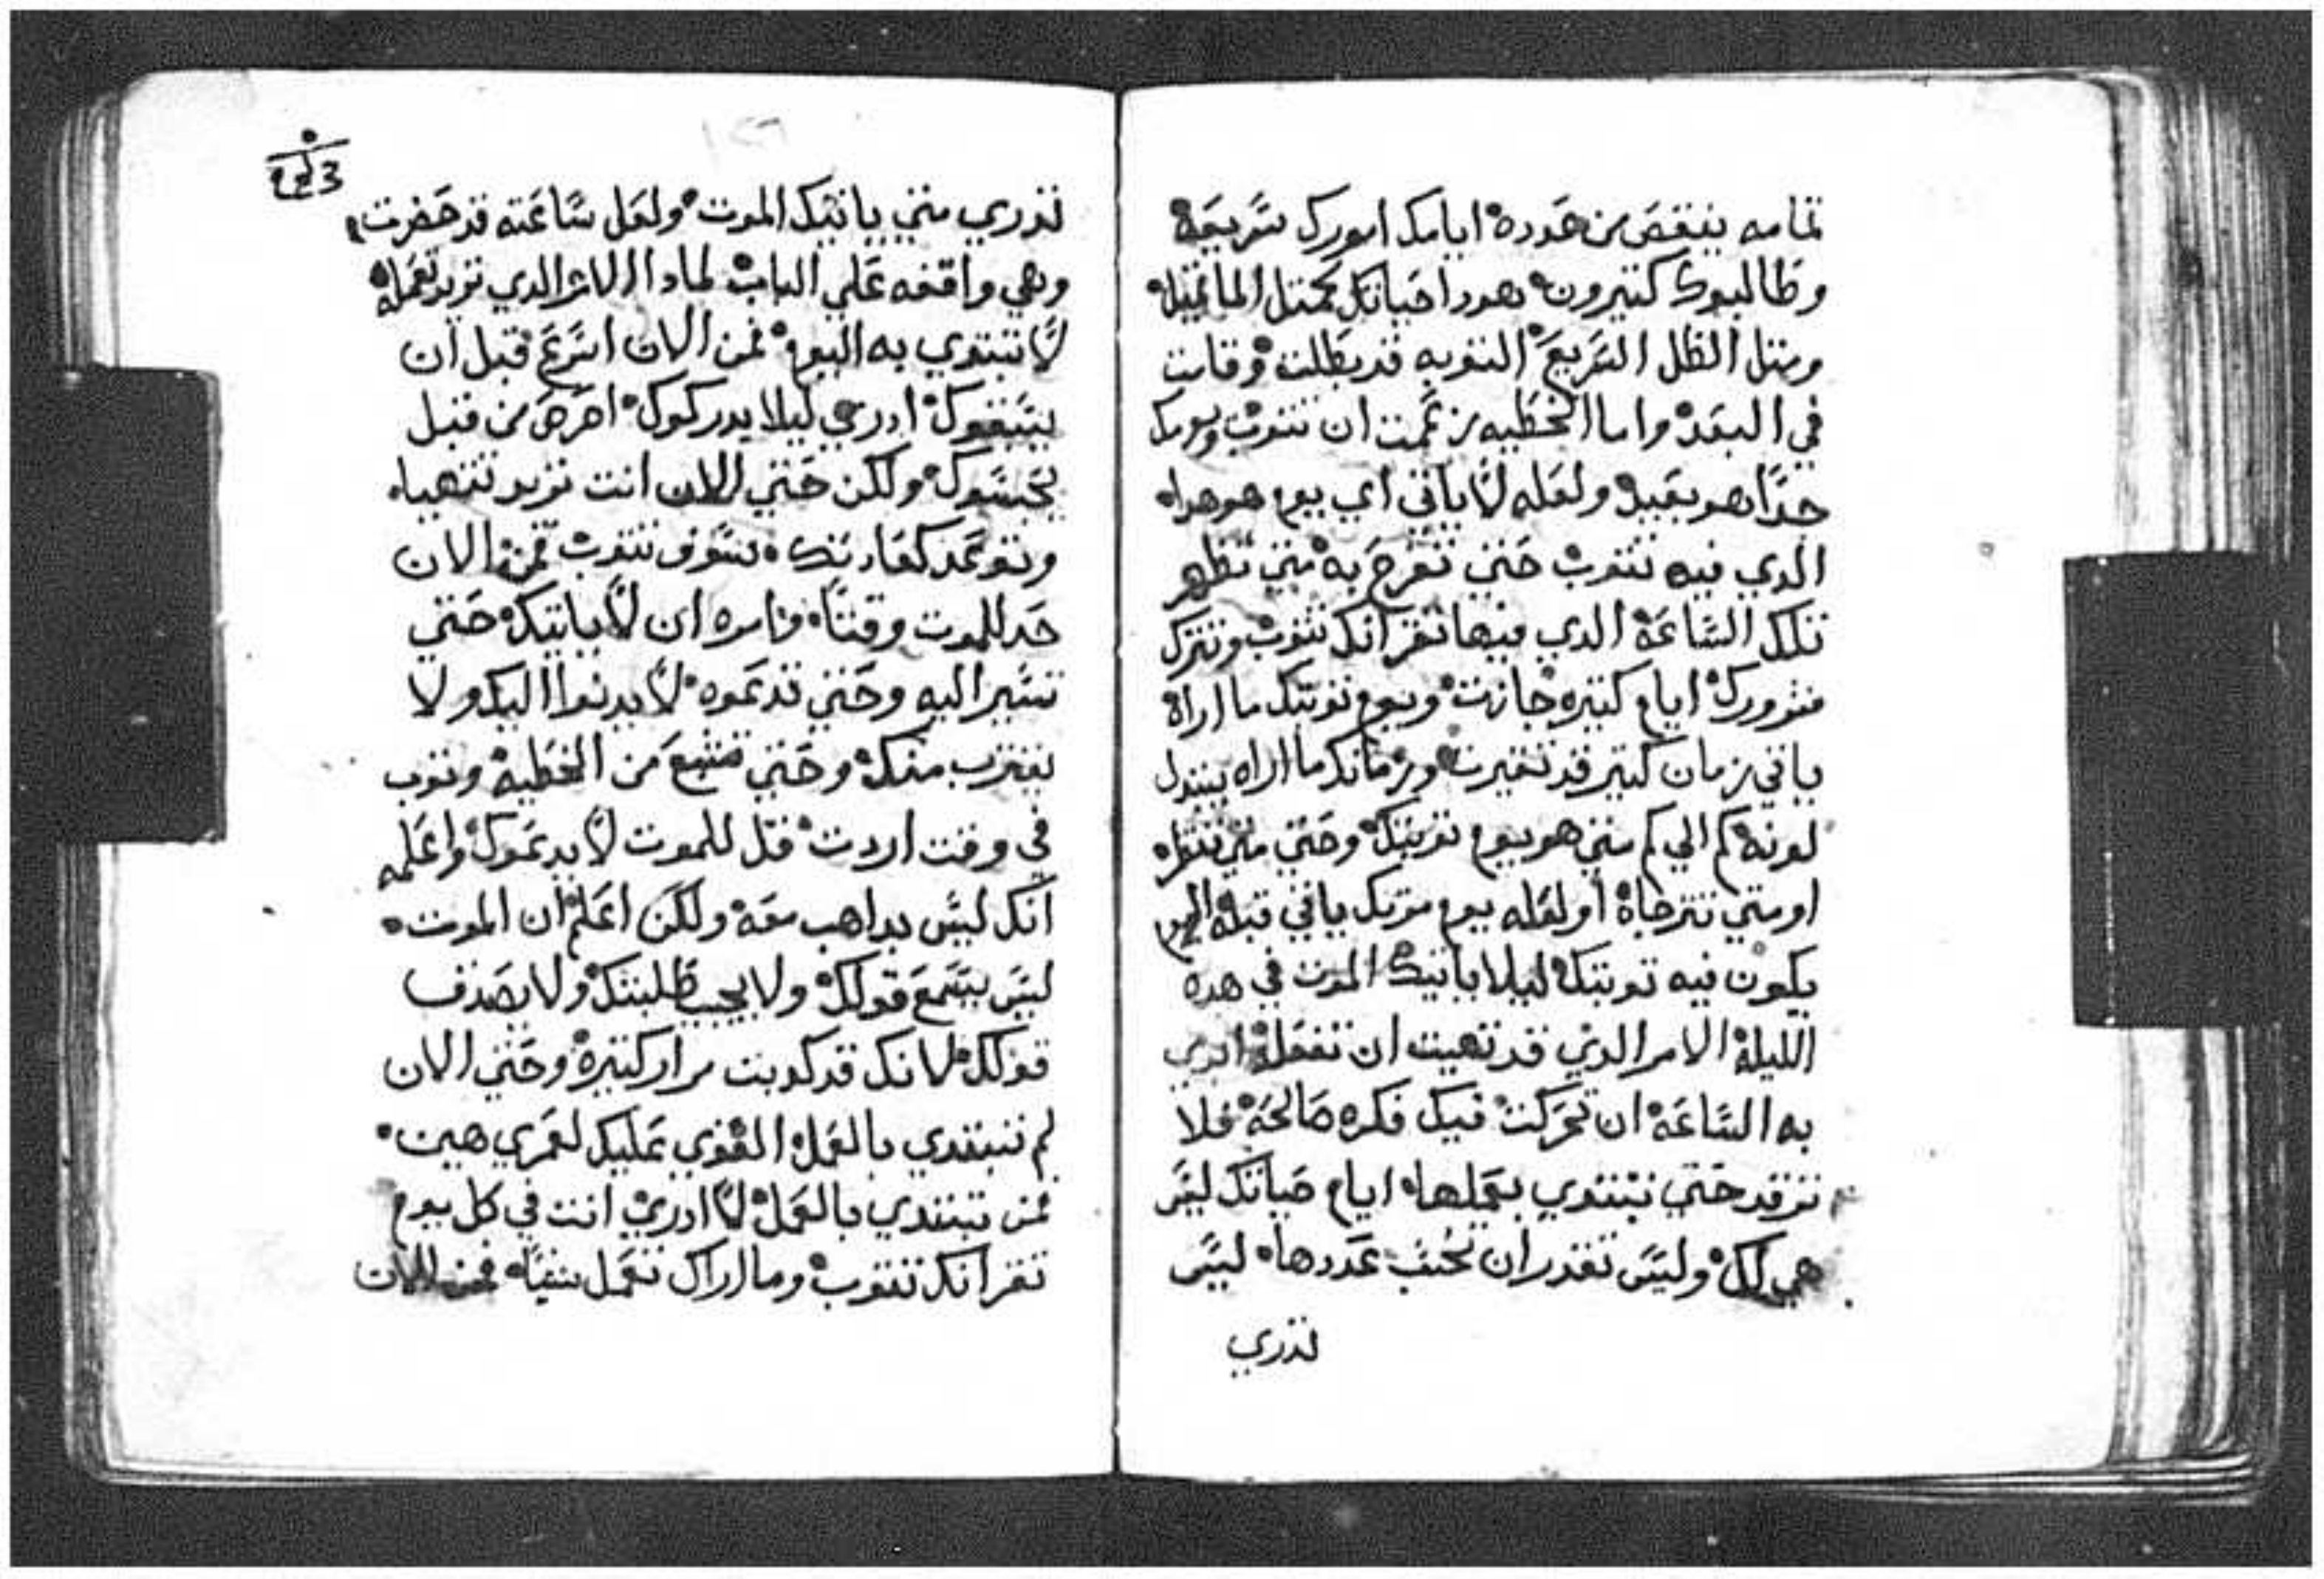 تمامه ينقص من حدوده ايامك امورك سريعة
وطالبوك كثيرون هوذا حياتك كمثل الما تميل
ومثل الظل السريع التوبه قد بطلت وقامت
في البعد واما الخطيه زعمت ان تتوب ويومك
جدا هو بعيد ولعله لا ياتي اي يوم هو هدا
الدي فيه تتوب حتي تفرح به متي تظهر
تلك الساعة الدي فيها تقر انك تتوب وتترك
شرورك ايام كتيره جازت ويوم توبتك ما اراة
ياتي زمان كتير قد تغيرت وزمانك ما اراه يتبدل
لونه كم الي كم متي هو يوم توبتك وحتي متي تنتظره
او متي تترجاة او لعله يوم موتك ياتي قبل اليوم
يكون فيه توبتك ليلا ياتيك الموت في هدة
الليلة الامر الدي قد تهيت ان تفعلة ابدي
به الساعة ان تحركت فيك فكره صالحة فلا
ترقد حتي تبتدي بعملها ايام حياتك ليس
هي لك وليس تقدر ان تحسب عددها ليس
تدري
تدري متي ياتيك الموت ولعل ساعته قد حضرت
وهي واقفه علي الباب لمادا الامر الدي تريد تعمله
لا تبتدي به اليوم فمن الان اسرع قبل ان
يسبقوك ادري ليلا يدركوك احرص من قبل
يحبسوك ولكن حتي الان انت تريد تتهيا
وتوعد كعادتك سوف تتوب فمن الان
حد للموت وقتا وامره ان لا ياتيك حتي
تشير اليه وحتي تدعوه لا يدنوا اليك ولا
يقترب منك وحتي تشبع من الخطية وتتوب
في وقت اردت قل للموت لا يدعوك واعلمه
انك ليس بداهب معه ولكن اعلم ان الموت
ليس يسمع قولك ولا يجيب طلبتك ولا يصدف
قولك لانك قد كدبت مرار كتيرة وحتي الان
لم تبتدي بالعمل القوي عليك لعمري هين
فمن تبتدي بالعمل لا ادري انت في كل يوم
تقر انك تتوب وما اراك تعمل شيا فمن الان